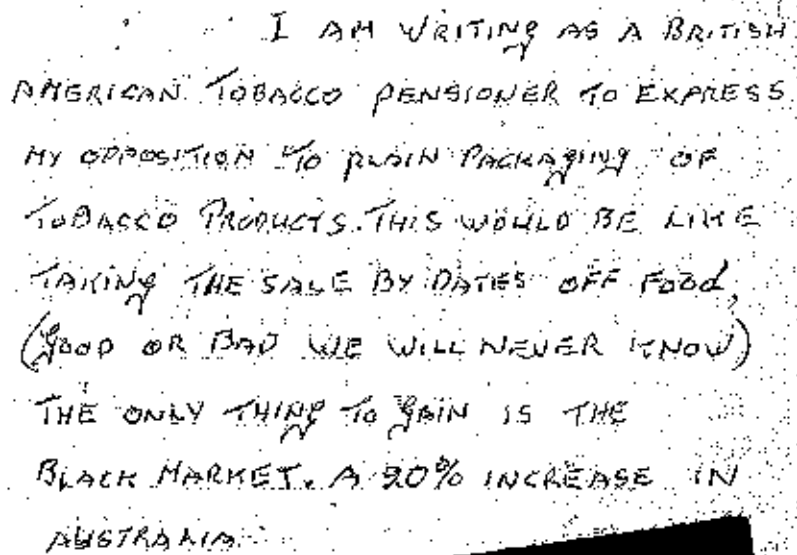 I AM WRITING AS A BRITISH
AMERICAN TOBACCO PENSIONER TO EXPRESS
MY OPPOSITION TO PLAIN PACKAGING OF
TOBACCO PRODUCTS. THIS WOULD BE LIKE
TAKING THE SALE BY DATES OFF FOOD,
(GOOD OR BAD WE WILL NEVER KNOW)
THE ONLY THING TO GAIN IS THE
BLACK MARKET. A 20% INCREASE IN
AUSTRALIA